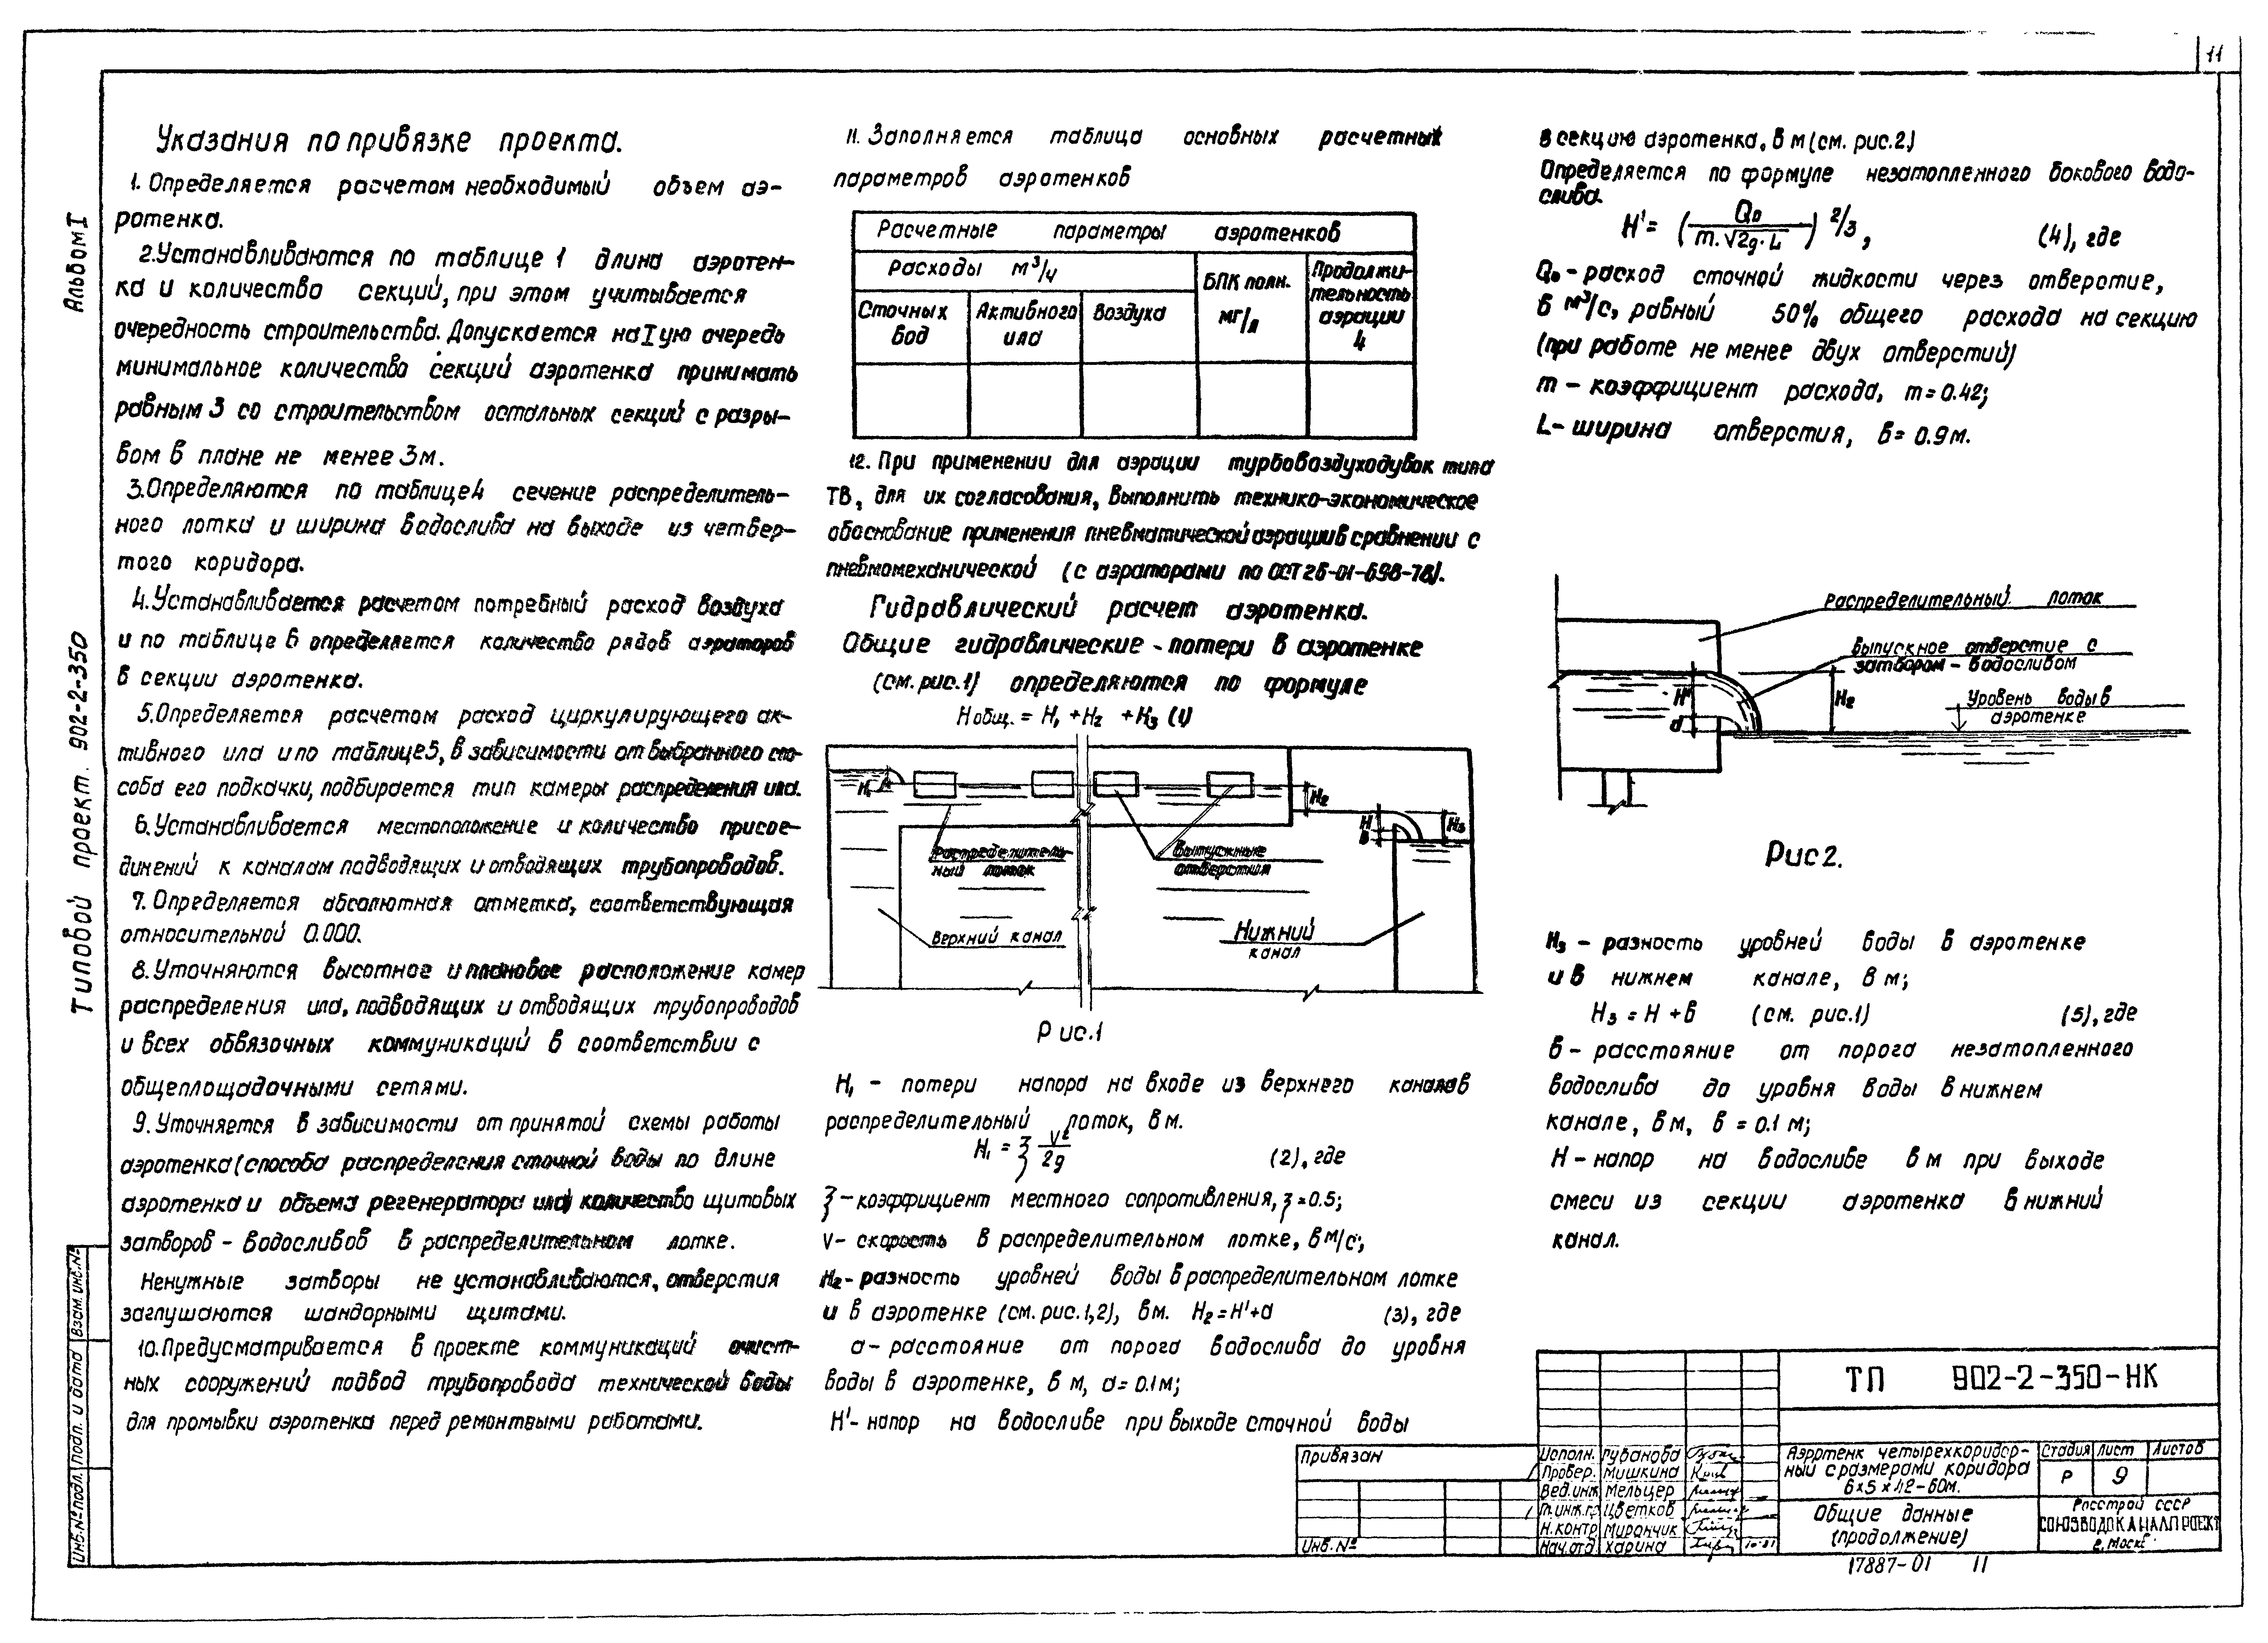 11
Альбом I
Типовой проект 902-2-350
Указания по привязке проекта.
1. Определяется расчетом необходимый объем аэ-
ротенка.
2. Устанавливаются по таблице 1 длина аэротен-
ка и количество секций, при этом учитывается
очередность строительства. Допускается на I ую очередь
минимальное количество секций аэротенка принимать
равным 3 со строительством остальных секций с разры-
вом в плане не менее 3м.
3. Определяются по таблице 4 сечение распределитель-
ного лотка и ширина водослива на выходе из четвер-
того коридора.
4. Устанавливается расчетом потребный расход воздуха
и по таблице 6 определяется количество рядов аэраторов
в секции аэротенка.
5. Определяется расчетом расход циркулирующего ак-
тивного ила и по таблице 5, в зависимости от выбранного спо-
соба его подкачки, подбирается тип камеры распределения ила.
6. Устанавливается местоположение и количество присое-
динений к каналам подводящих и отводящих трубопроводов.
7. Определяется абсолютная отметка, соответствующая
относительной 0.000.
8. Уточняются высотное и плановое расположение камер
распределения ила, подводящих и отводящих трубопроводов
и всех обвязочных коммуникаций в соответствии с
общеплощадочными сетями.
9. Уточняется в зависимости от принятой схемы работы
аэротенка (способа распределения сточной воды по длине
аэротенка и объема регенератора ила) количество щитовых
затворов - водосливов в распределительном лотке.
Ненужные затворы не устанавливаются, отверстия
заглушаются шандорными щитами.
10. Предусматривается в проекте коммуникаций очист-
ных сооружений подвод трубопровода технической воды
для промывки аэротенка перед ремонтными работами.
11. Заполняется таблица основных расчетных
параметров аэротенков
Расчетные параметры аэротенков
Расходы м³/ч
БПК полн. мг/л
Продолжи-
тельность
аэрации
ч
Сточных вод
Активного ила
Воздуха
12. При применении для аэрации турбовоздуходувок типа
ТВ, для их согласования, выполнить технико-экономическое
обоснование применения пневматической аэрации в сравнении с
пневмомеханической (с аэраторами по ОСТ 26-01-698-78).
Гидравлический расчет аэротенка.
Общие гидравлические - потери в аэротенке
(см. рис. 1) определяются по формуле
Hобщ. = H₁ + H₂ + H₃ (1)
H₁
H₂
H
в
H₃
Распределитель-
ный лоток
Выпускные
отверстия
Верхний канал
Нижний
канал
Рис.1
H₁ - потери напора на входе из верхнего канала в
распределительный лоток, в м.
H₁ = ξ V²/2g (2), где
ξ - коэффициент местного сопротивления, ξ = 0.5;
V - скорость в распределительном лотке, в м/с;
H₂ - разность уровней воды в распределительном лотке
и в аэротенке (см. рис. 1,2), в м. H₂ = H' + d (3), где
а - расстояние от порога водослива до уровня
воды в аэротенке, в м, d = 0.1м;
H' - напор на водосливе при выходе сточной воды
в секцию аэротенка, в м (см. рис.2)
Определяется по формуле незатопленного бокового водо-
слива.
H' = (Q₀ / m·√2g·L) 2/3, (4), где
Q₀ - расход сточной жидкости через отверстие,
в м³/с, равный 50% общего расхода на секцию
(при работе не менее двух отверстий)
m - коэффициент расхода, m = 0.42;
L - ширина отверстия, в = 0.9м.
Распределительный лоток
Выпускное отверстие с
затвором - водосливом
Уровень воды в
аэротенке
H'
d
H₂
Рис 2.
H₃ - разность уровней воды в аэротенке
и в нижнем канале, в м;
H₃ = H + в (см. рис.1) (5), где
в - расстояние от порога незатопленного
водослива до уровня воды в нижнем
канале, в м, в = 0.1 м;
H - напор на водосливе в м при выходе
смеси из секции аэротенка в нижний
канал.
Взам. инв.№
Подп. и дата
Инв.№ подл.
Привязан
Инв. №
Исполн. Губанова
Провер. Мишкина
Вед. инж Мельцер
Гл.инж.п. Цветков
Н.контр Мирончик
Нач.отд Харина
10-81
ТП 902-2-350-НК
Аэротенк четырехкоридор-
ный с размерами коридора
6х5х42-60м.
Стадия Лист Листов
Р 9
Общие данные
(продолжение)
Госстрой СССР
СОЮЗВОДОКАНАЛПРОЕКТ
г. Москва
17887-01 11